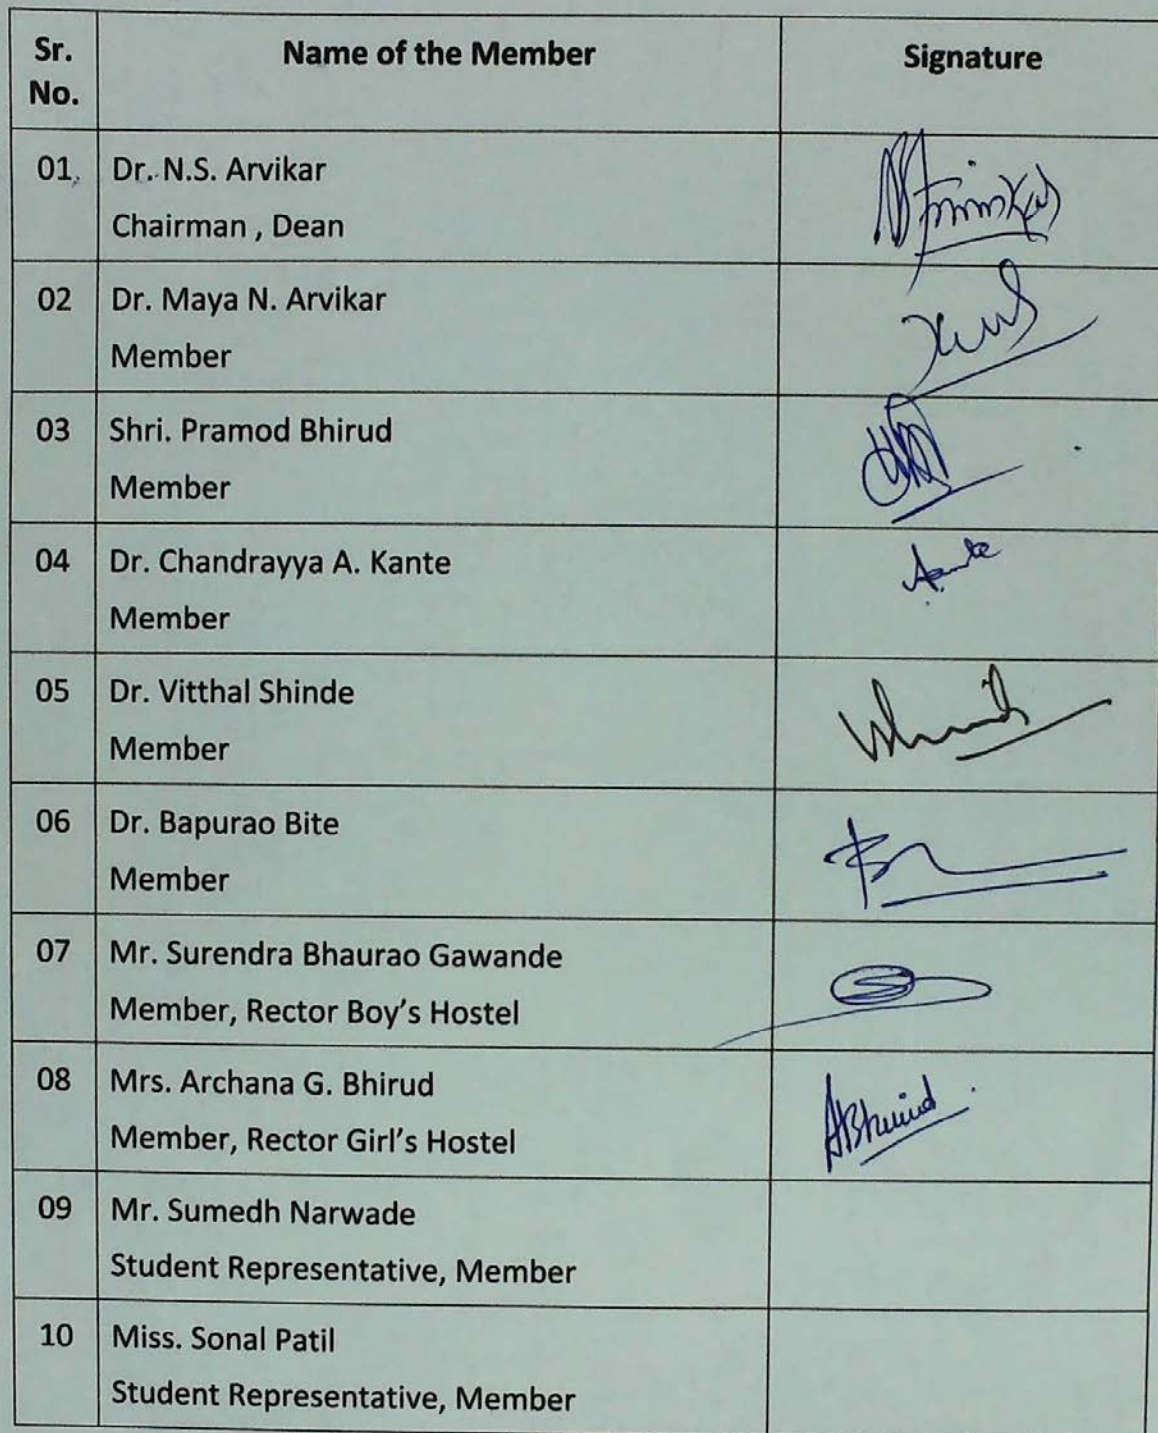 Sr. No.
Name of the Member
Signature
01
Dr. N.S. Arvikar
Chairman , Dean
02
Dr. Maya N. Arvikar
Member
03
Shri. Pramod Bhirud
Member
04
Dr. Chandrayya A. Kante
Member
05
Dr. Vitthal Shinde
Member
06
Dr. Bapurao Bite
Member
07
Mr. Surendra Bhaurao Gawande
Member, Rector Boy's Hostel
08
Mrs. Archana G. Bhirud
Member, Rector Girl's Hostel
ABhirud
09
Mr. Sumedh Narwade
Student Representative, Member
10
Miss. Sonal Patil
Student Representative, Member